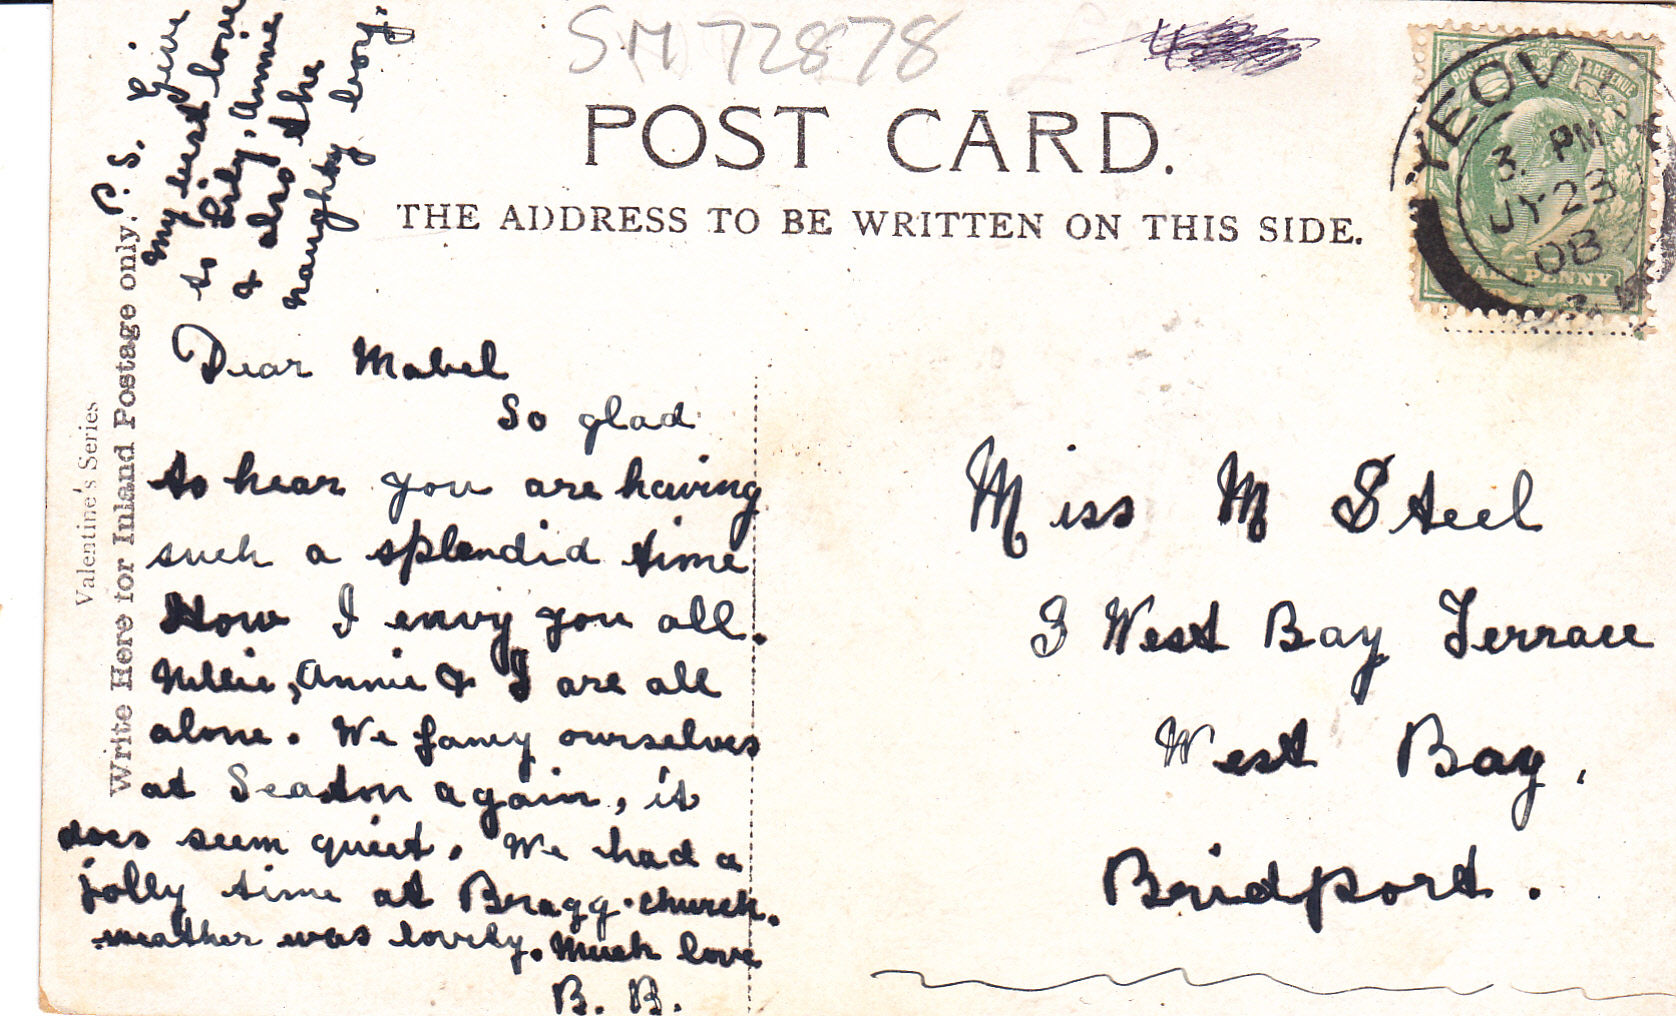 SM 72878
POST CARD.
THE ADDRESS TO BE WRITTEN ON THIS SIDE.
YEOVIL
3. PM
JY 23
08
HALF PENNY
Valentine's Series
Write Here for Inland Postage only.
P. S. Give
my best love
to Lily, Annie
& also the
naughty boy"
Dear Mabel
So glad
to hear you are having
such a splendid time
How I envy you all.
Nellie, Annie & I are all
alone. We fancy ourselves
at Seaton again, it
does seem quiet. We had a
jolly time at Bragg-church.
weather was lovely. Much love
B. B.
Miss M Steel
3 West Bay Terrace
West Bay,
Bridport.